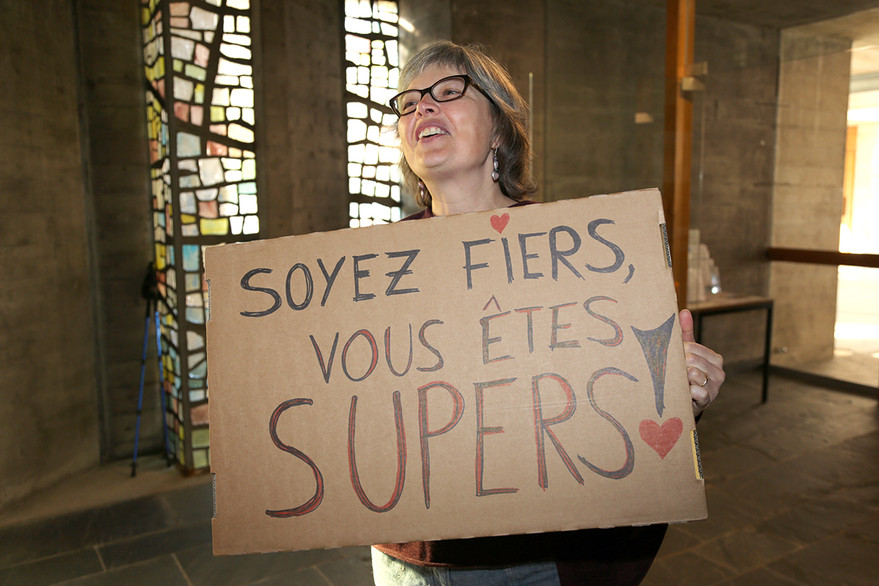 SOYEZ FIERS,
VOUS ÊTES
SUPERS!